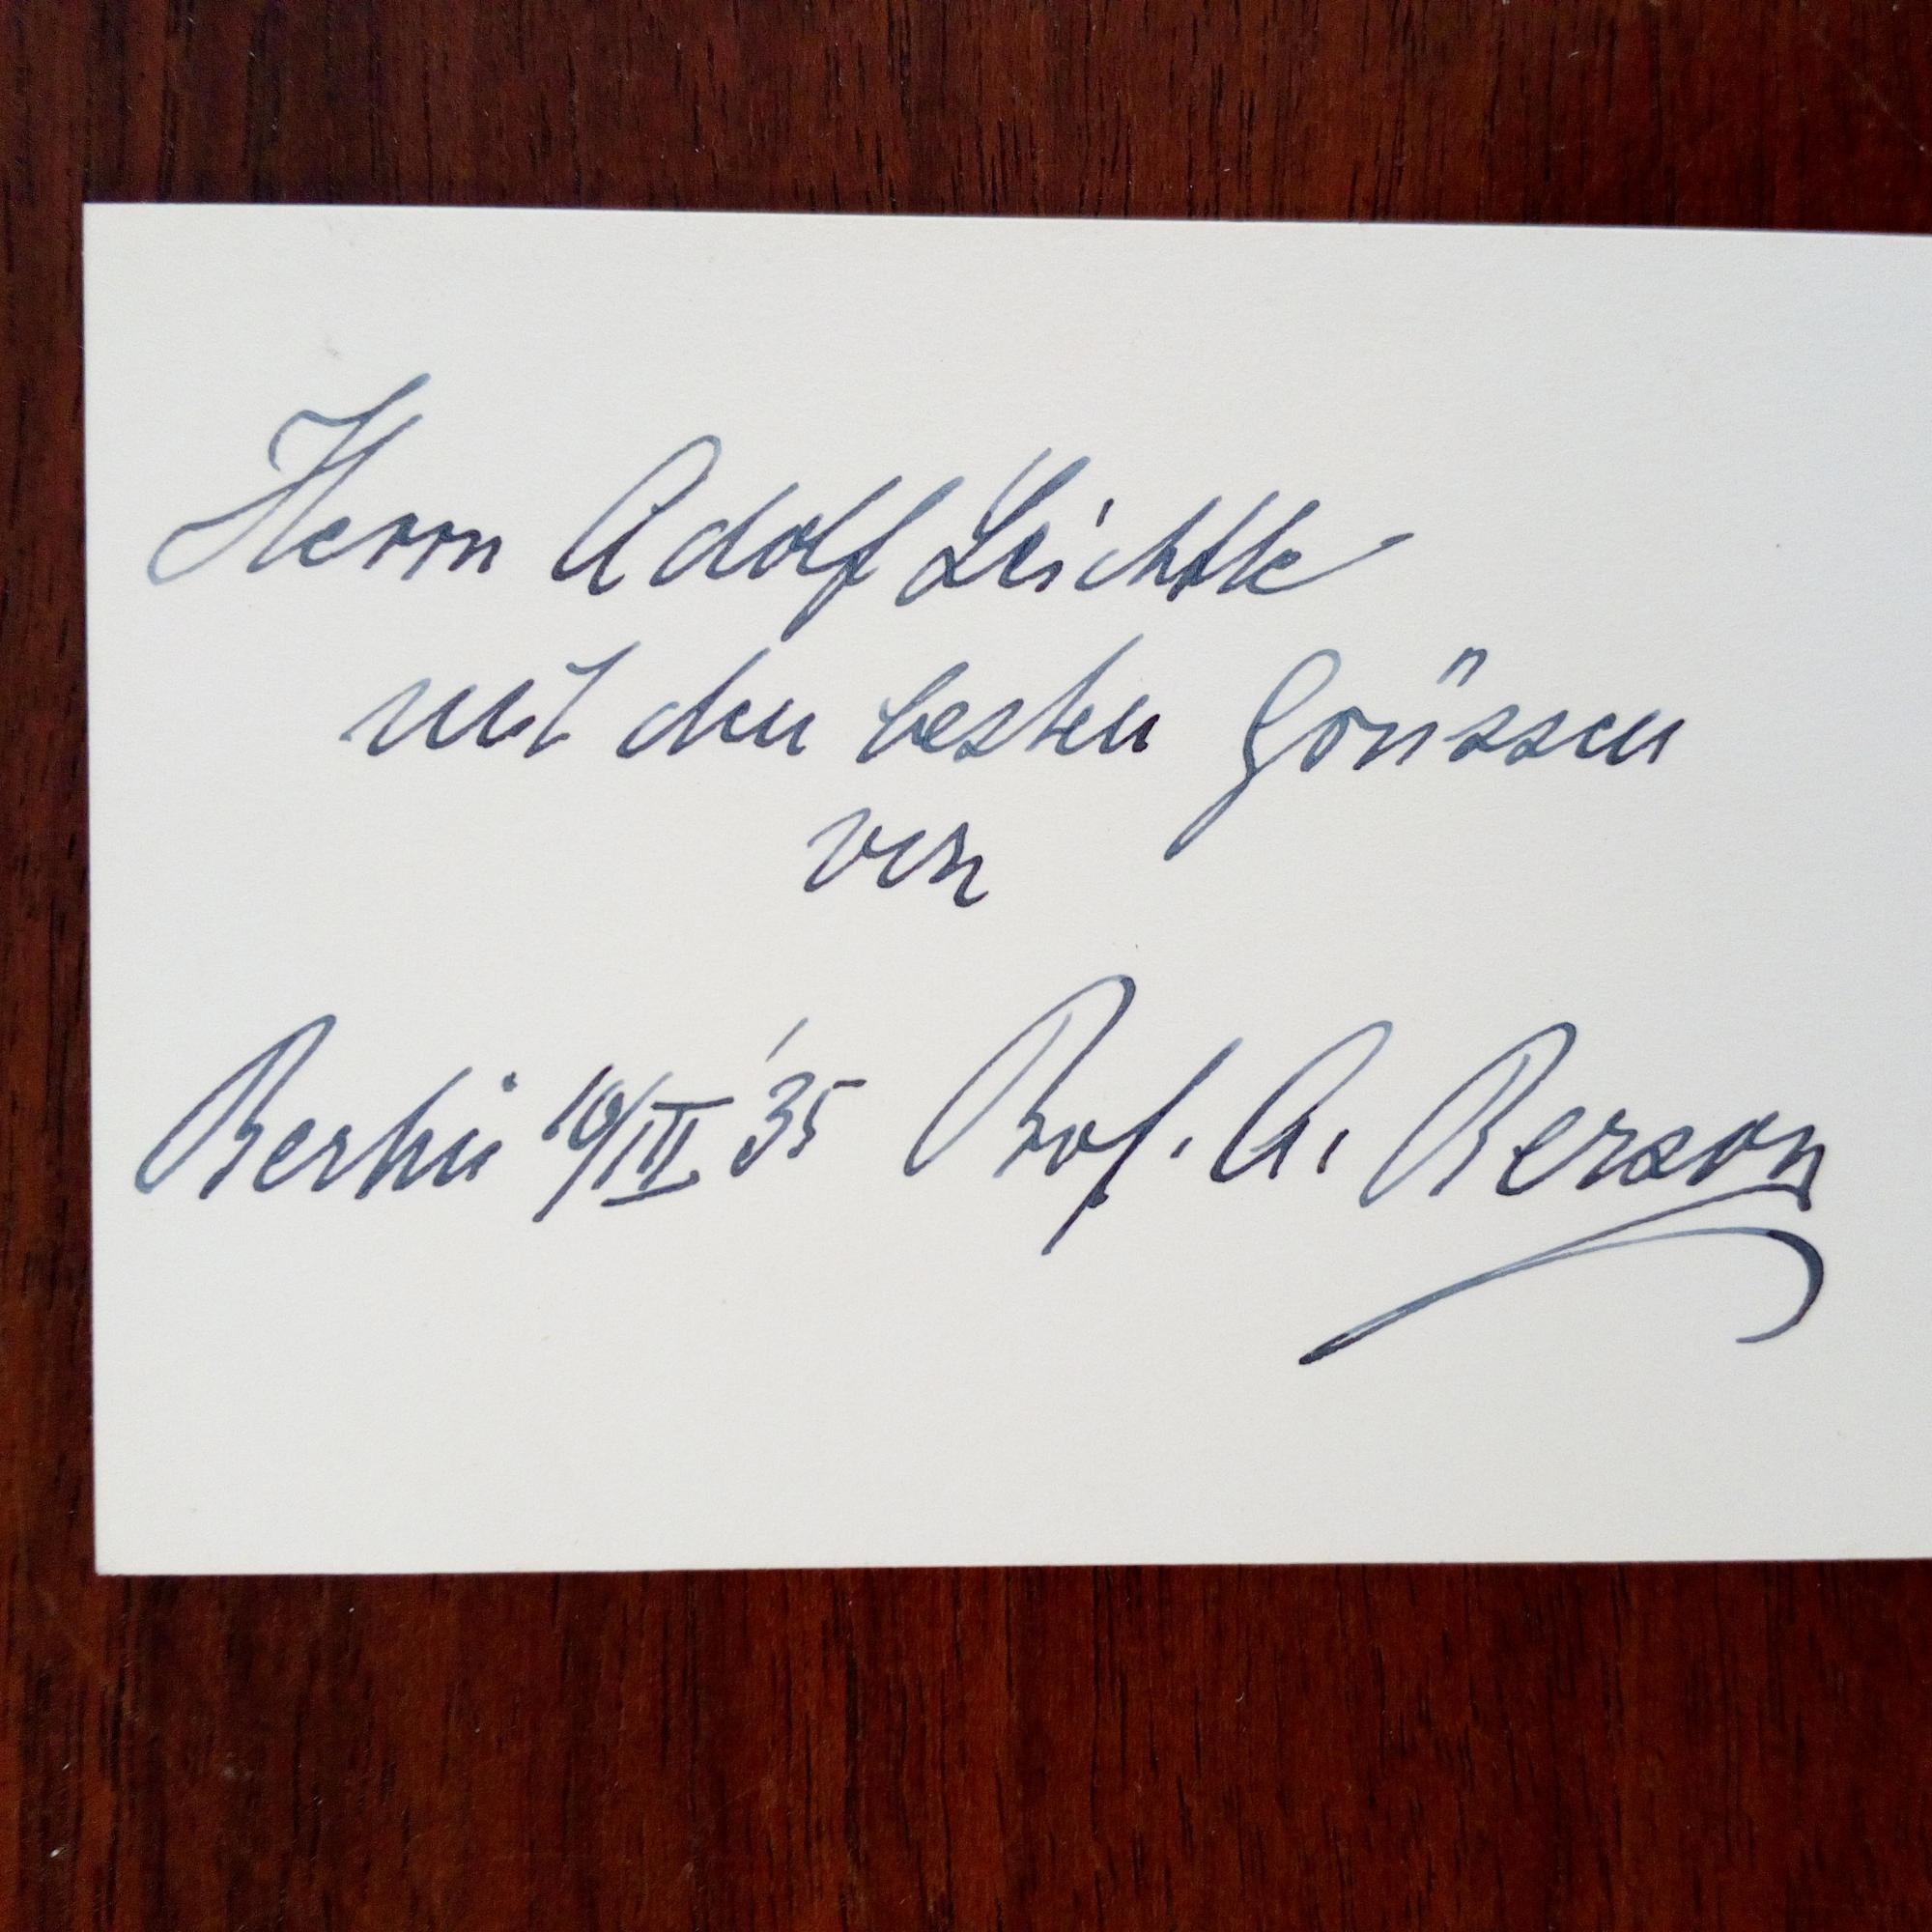 Herrn Adolf Leichtle
mit den besten Grüssen
von
Berlin 10/III '35 Prof. A. Berson